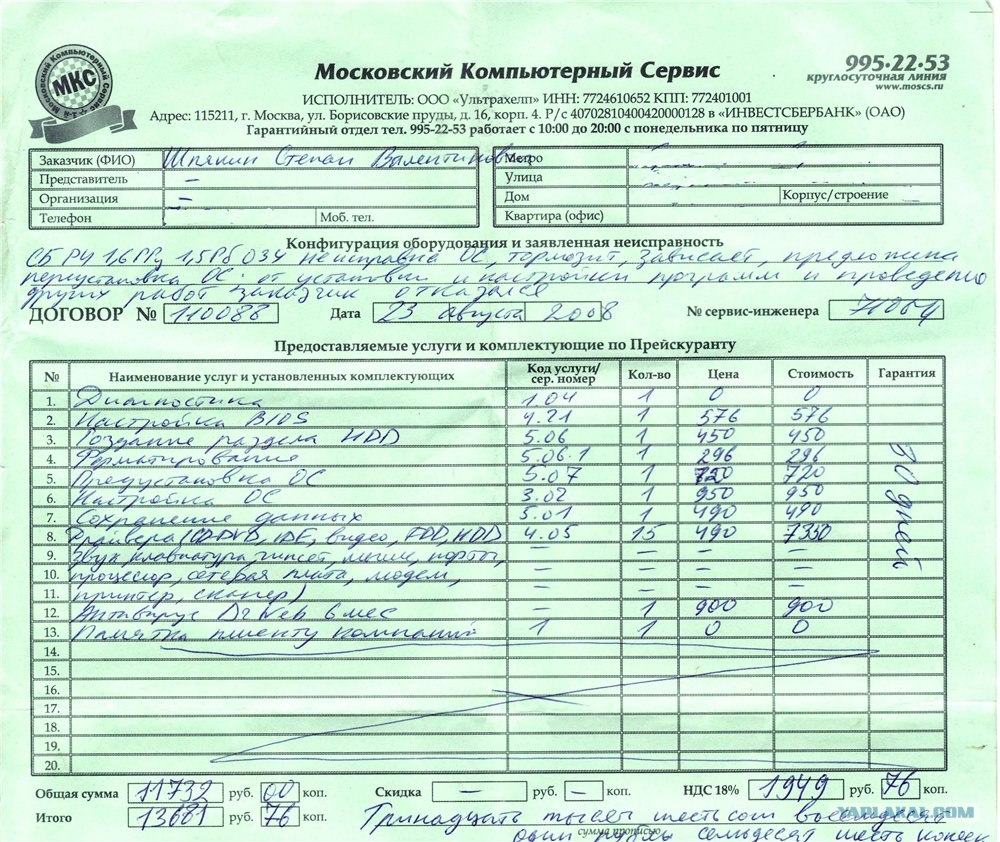 Московский Компьютерный Сервис
МКС
995·22·53
круглосуточная линия
www.moscs.ru
ИСПОЛНИТЕЛЬ: ООО «Ультрахелп» ИНН: 7724610652 КПП: 772401001
Адрес: 115211, г. Москва, ул. Борисовские пруды, д. 16, корп. 4. Р/с 40702810400420000128 в «ИНВЕСТСБЕРБАНК» (ОАО)
Гарантийный отдел тел. 995-22-53 работает с 10:00 до 20:00 с понедельника по пятницу
Заказчик (ФИО) Степан Валентинович
Представитель –
Организация –
Телефон Моб. тел.
Метро
Улица
Дом Корпус/строение
Квартира (офис)
Конфигурация оборудования и заявленная неисправность
СБ P4 ОЗУ неисправна ОС, тормозит, зависает, предложена
переустановка ОС. от установки и настройки программ и проведено
других работ заказчик отказался
ДОГОВОР № 110088 Дата 23 августа 2008 № сервис-инженера
Предоставляемые услуги и комплектующие по Прейскуранту
№ Наименование услуг и установленных комплектующих Код услуги/сер. номер Кол-во Цена Стоимость Гарантия
1. Диагностика 1.04 1 0 0
2. Настройка BIOS 4.21 1 576 576
3. Создание раздела HDD 5.06 1 450 450
4. Форматирование 5.06.1 1 296 296
5. Предустановка ОС 5.07 1 720 720
6. Настройка ОС 3.02 1 950 950
7. Сохранение данных 5.01 1 490 490
8. Драйвера (CD-DVD, IDE, видео, FDD, HDD 4.05 15 490 7350
9. Звук, клавиатура, чипсет, мышь, порты, – – – –
10. процессор, сетевая плата, модем, – – – –
11. принтер, сканер) – – – –
12. Антивирус DrWeb 6 мес – 1 900 900
13. Памятка клиенту компании 1 1 0 0
30 дней
14.
15.
16.
17.
18.
19.
20.
Общая сумма 11732 руб. 00 коп. Скидка – руб. – коп. НДС 18% 1949 руб. 76 коп.
Итого 13681 руб. 76 коп. Тринадцать тысяч шестьсот восемьдесят
один рубль семьдесят шесть копеек
сумма прописью
YAPLAKAL.COM